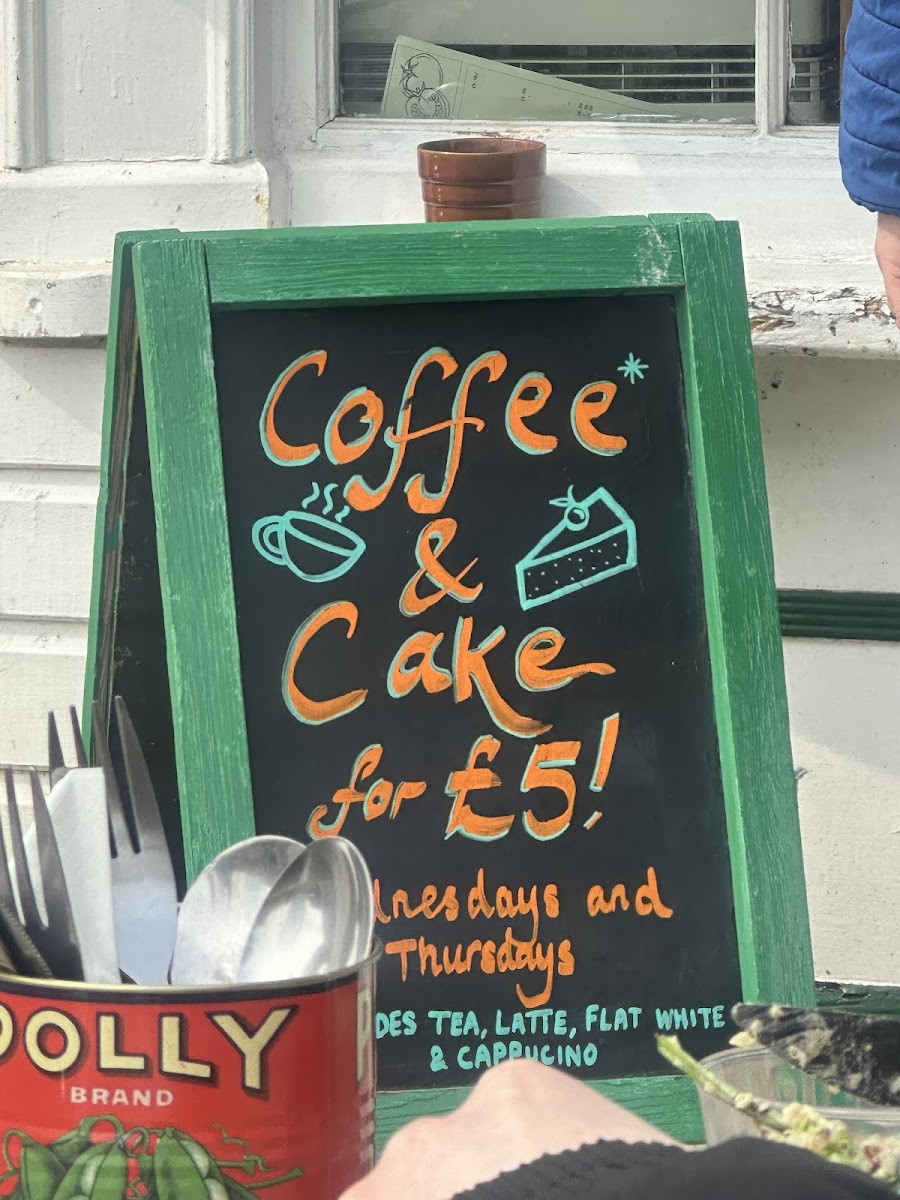 Coffee*
&
Cake
for £5!
dnesdays and
Thursdays
DES TEA, LATTE, FLAT WHITE
& CAPPUCINO
POLLY
BRAND